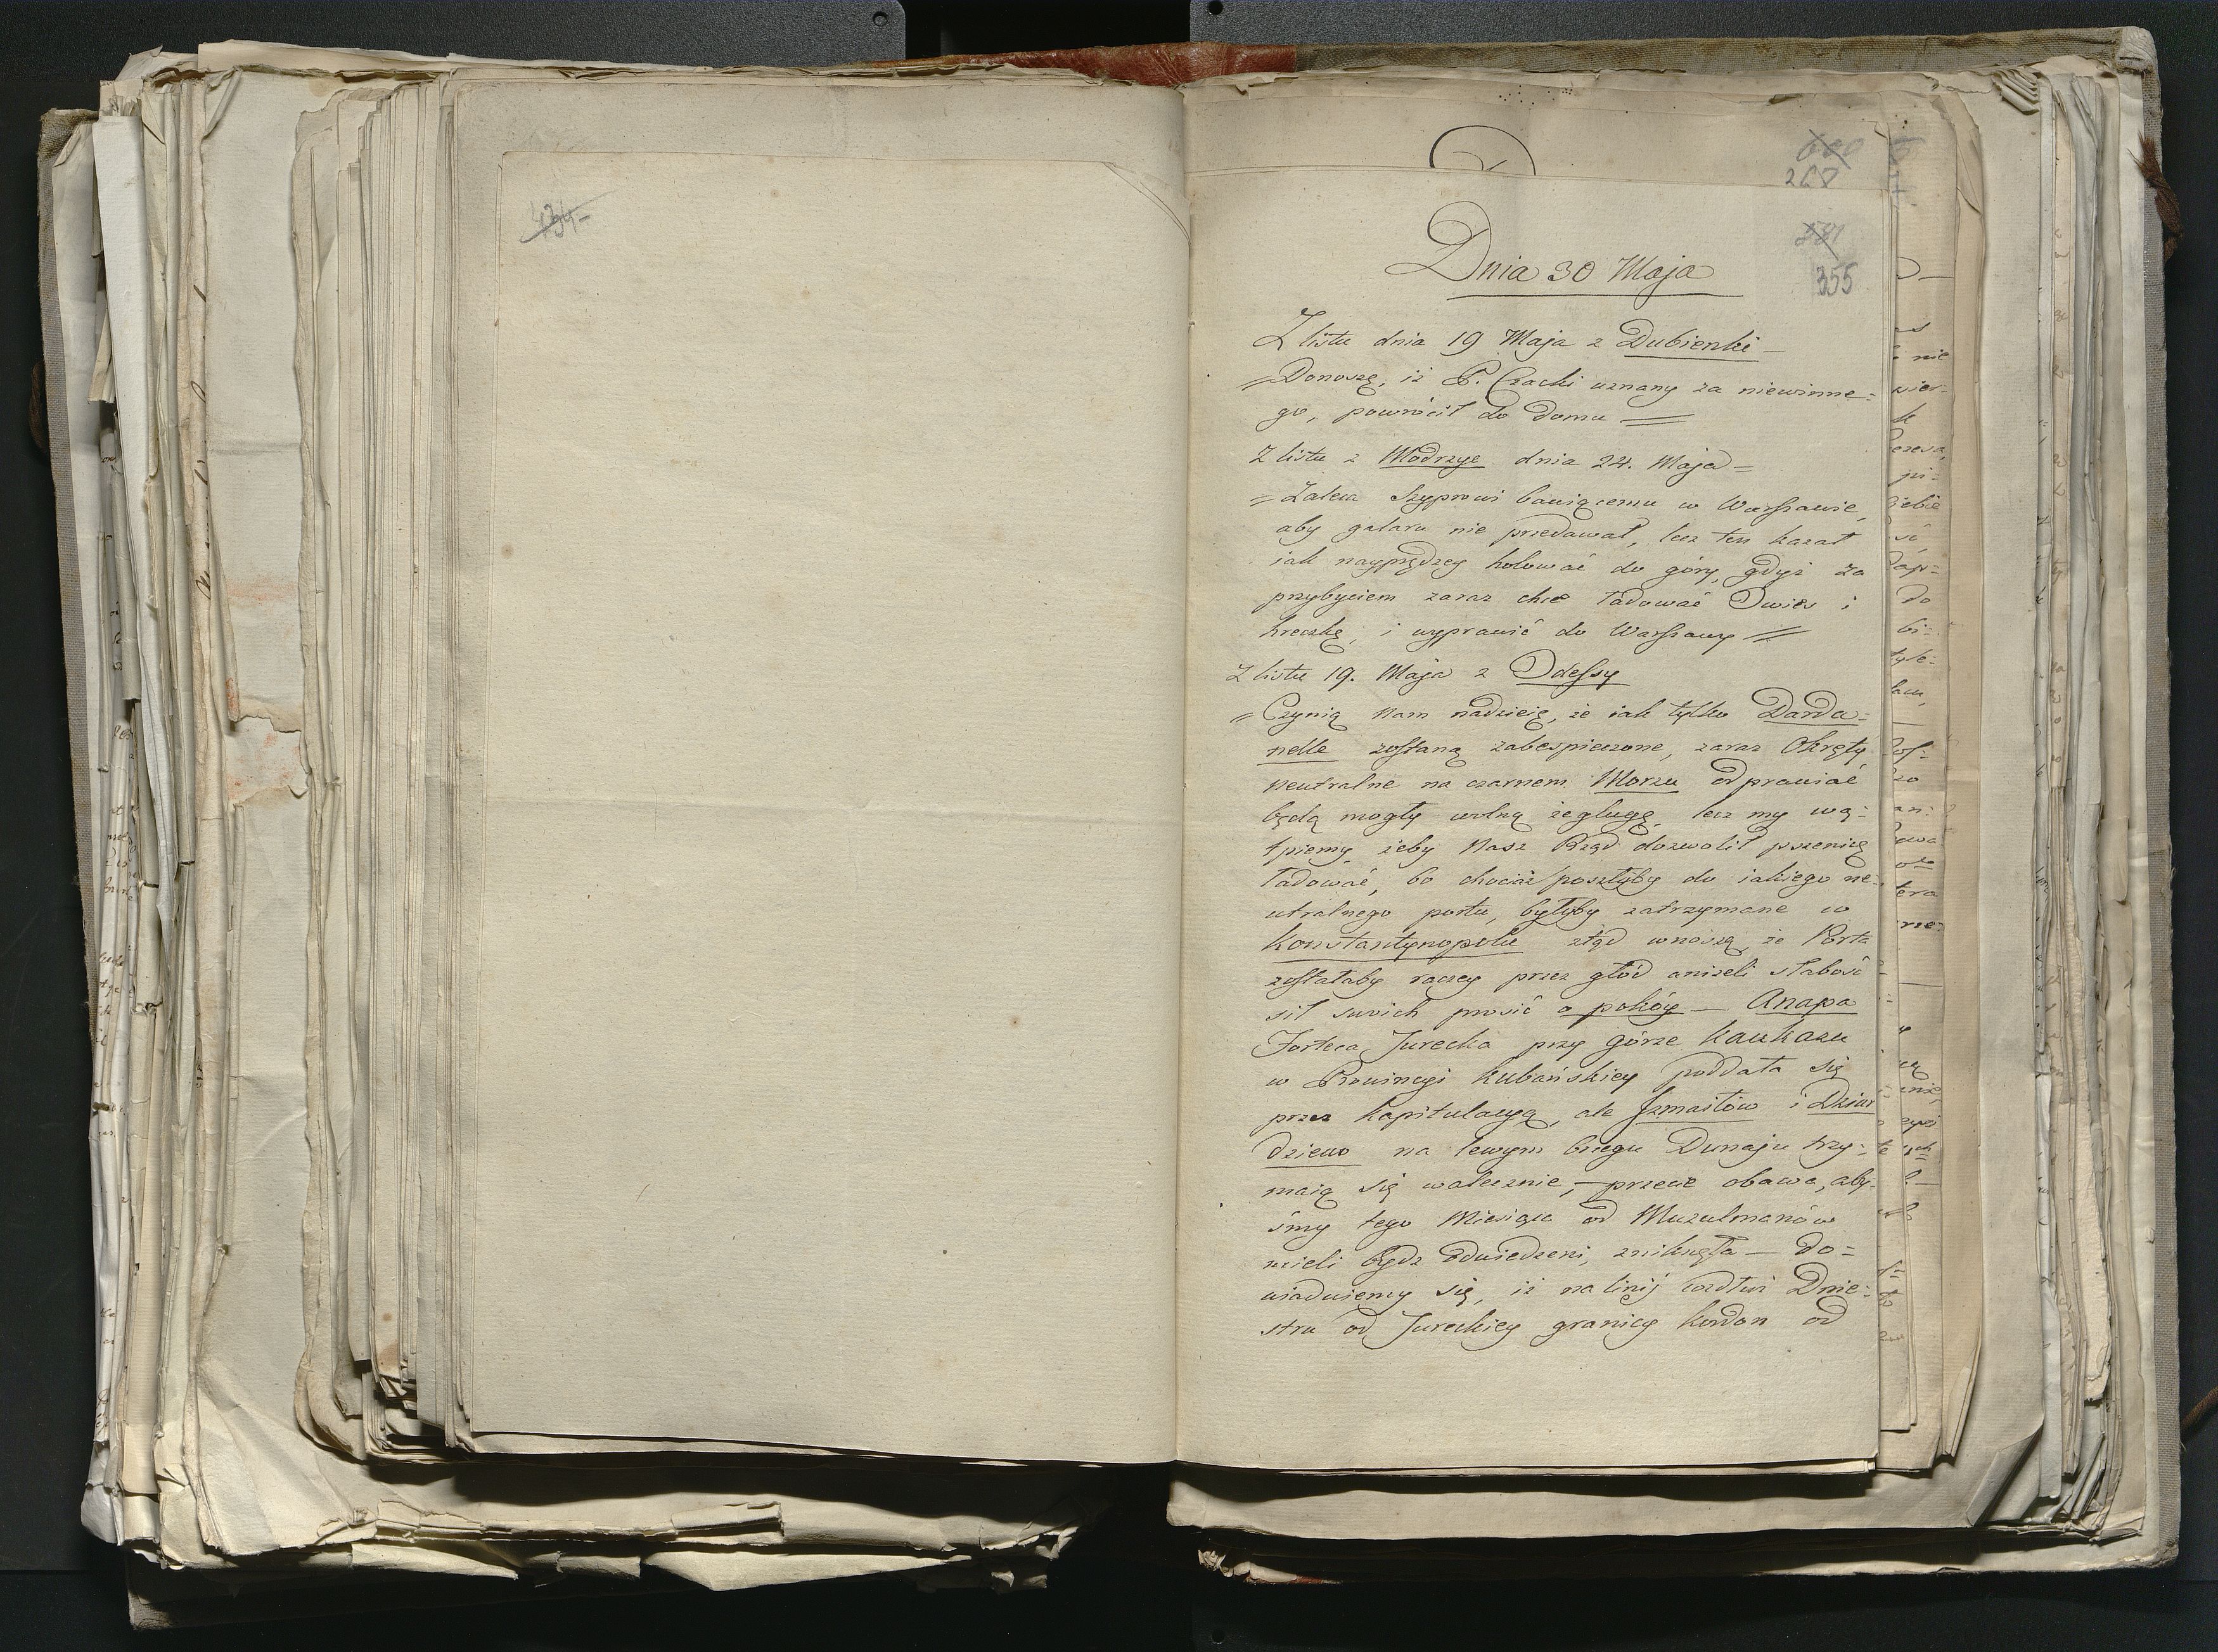 434-
268
355
Dnia 30 Maja
Z listu dnia 19 Maja z Dubienki —
=Donoszę, iż P. Czacki uznany za niewinne=
go, powrócił do domu =
Z listu z Modrzyc dnia 24. Maja =
= Zaleca Szyprowi bawiącemu w Warszawie,
aby galaru nie przedawał, lecz ten kazał
iak nayprędzey holować do góry, gdyż za
przybyciem zaraz chce ładować Owies i
hreczkę, i wyprawić do Warszawy =
Z listu 19. Maja z Odessy
= Czynią nam nadzieię, że iak tylko Darda=
nelle zostaną zabespieczone, zaraz Okręty
neutralne na czarnem Morzu odprawiać
będą mogły wolną żeglugę, lecz my wą=
tpiemy żeby Nasz Rząd dozwolił pszenicę
ładować, bo chociaż poszłyby do iakiego ne=
utralnego portu, byłyby zatrzymane w
Konstantynopolu ztąd wnoszą, że Porta
zostałaby raczey przez głód aniżeli słabość
sił swich prosić o pokóy — Anapa
Forteca Turecka przy górze Kaukazu
w Prowincyi Kubańskiey poddała się
przez kapitulacyą, ale Izmaiłow i Dziur
dziewo na lewym brzegu Dunaju trzy=
maią się walecznie, — przecie obawa, aby=
śmy tego Miesiąca od Muzulmanów
mieli bydz odwiedzeni, zniknęła — Do=
wiadujemy się, iż na linij wzdłuż Dnie=
stru od Tureckiey granicy kordon od